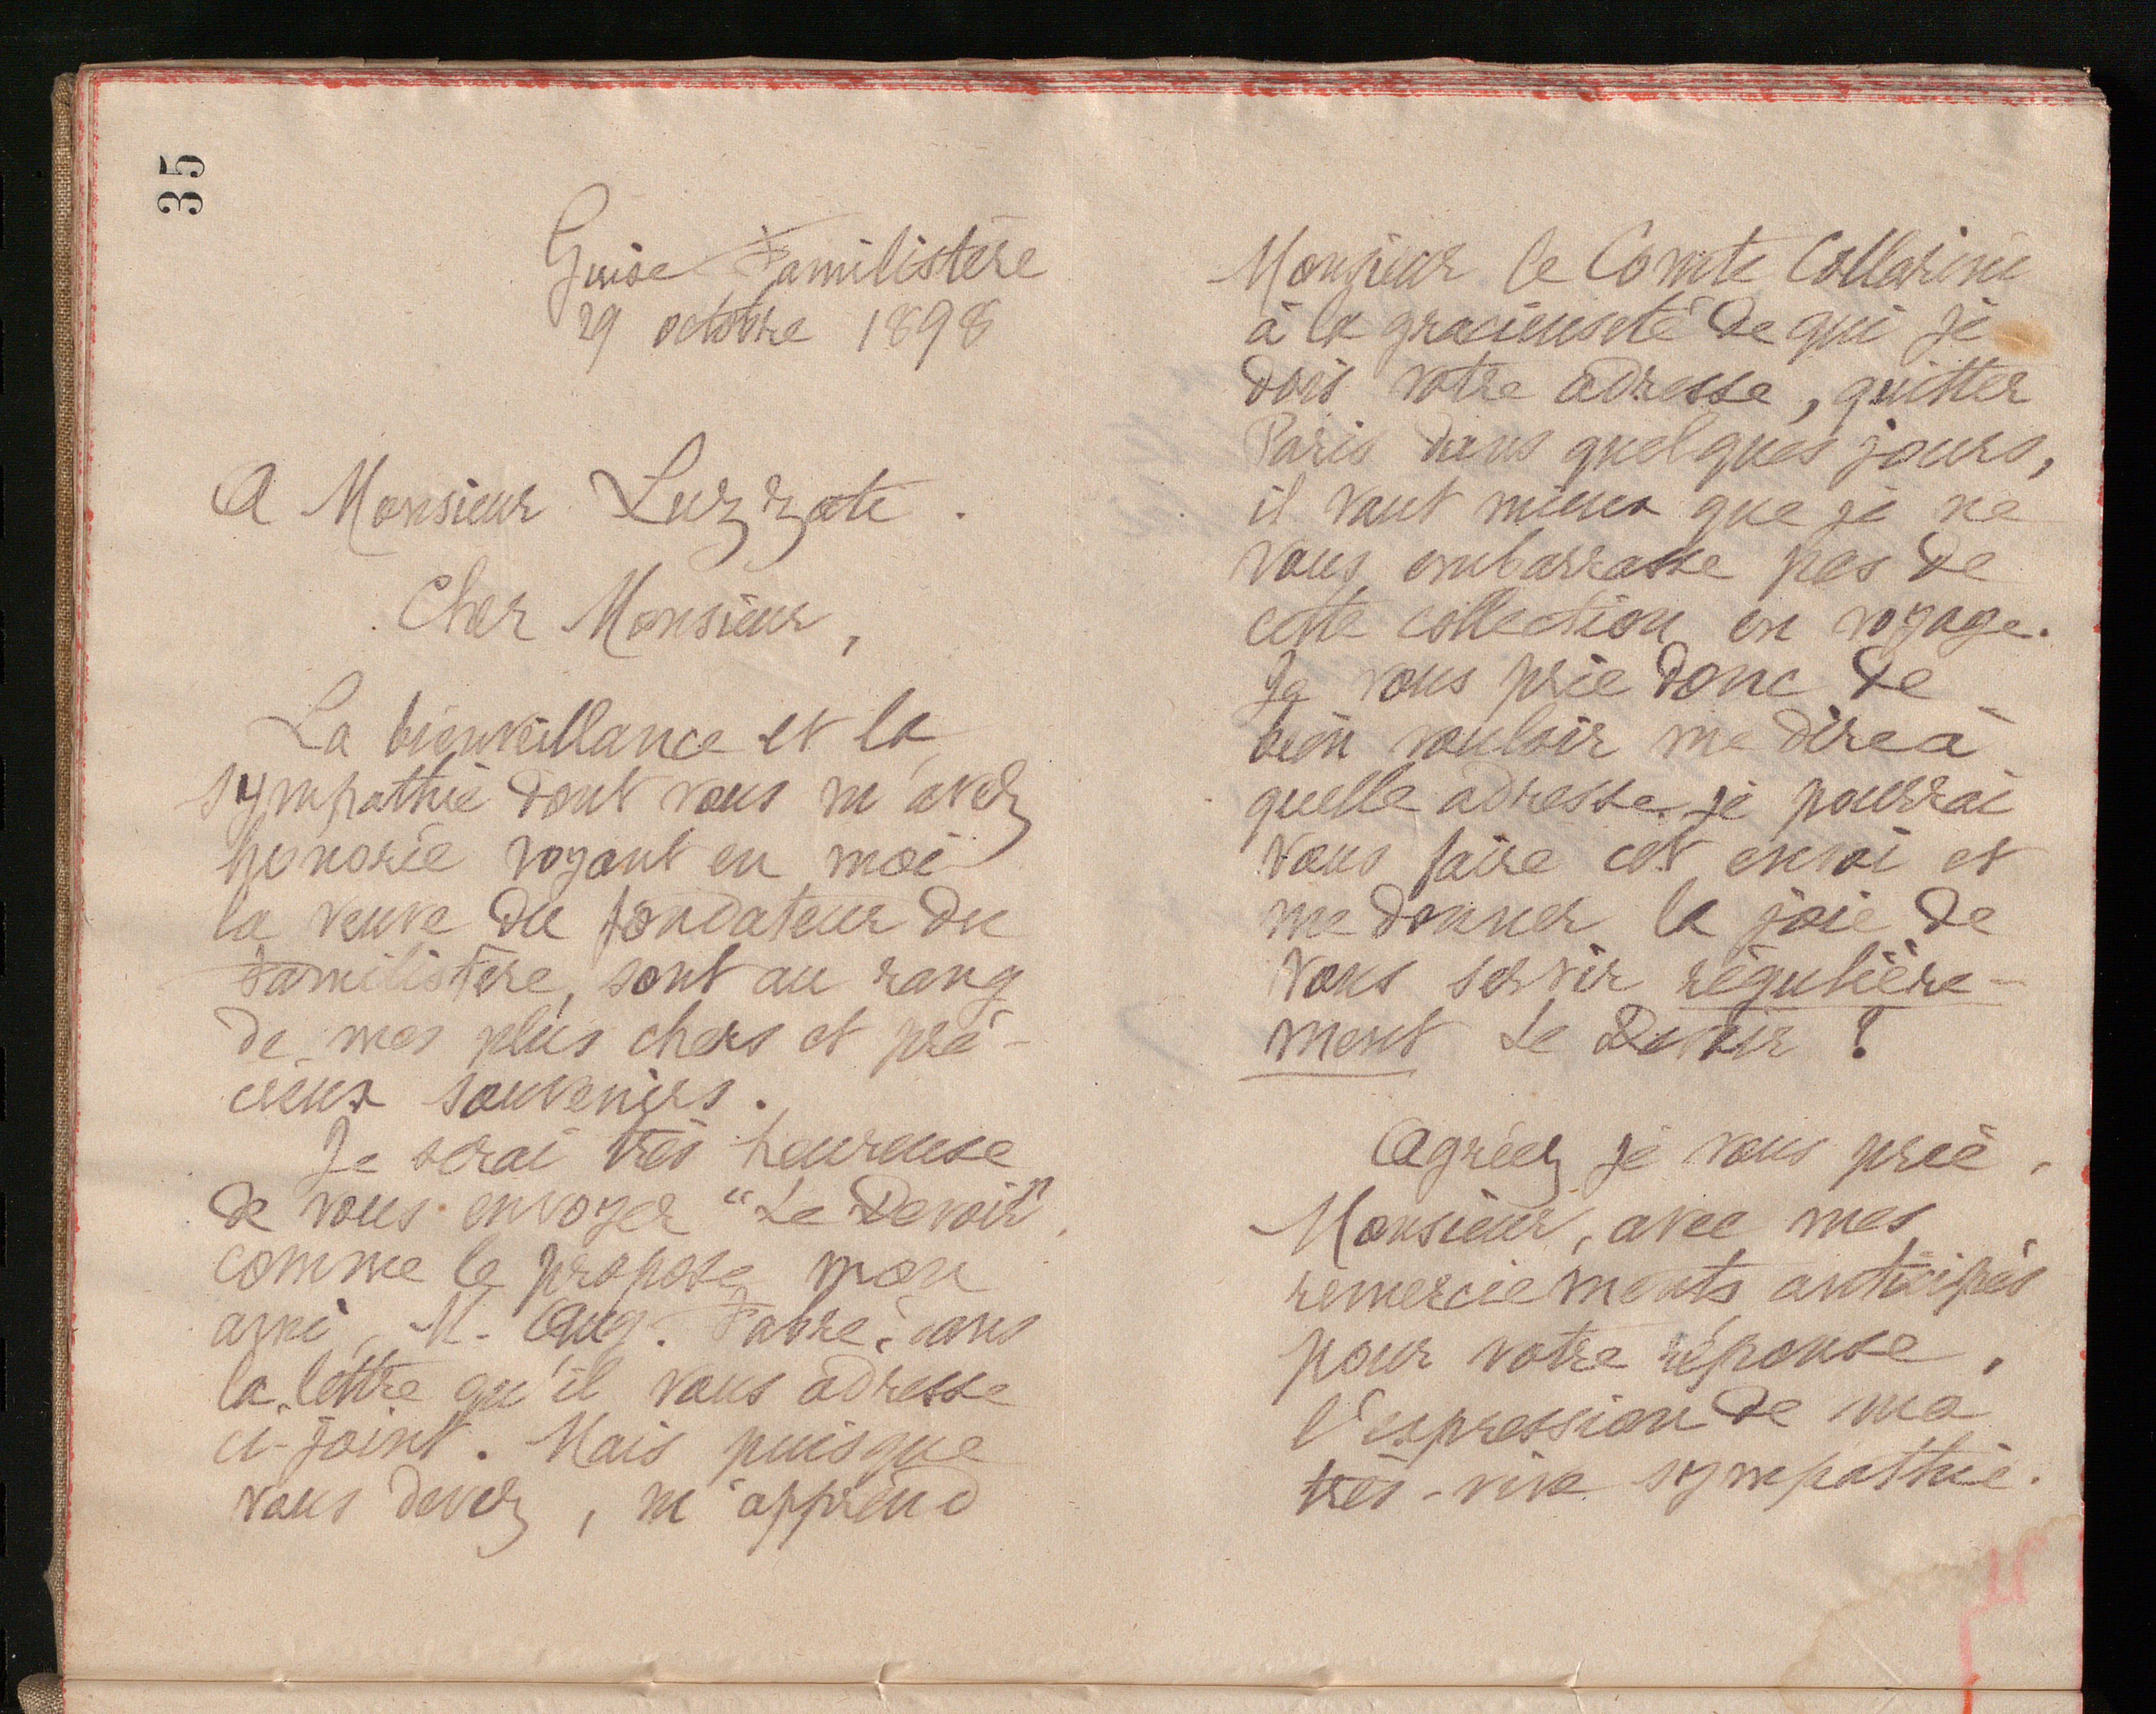 35
Guise Familistère
29 octobre 1898
A Monsieur Luzzate.
Cher Monsieur,
La bienveillance et la
sympathie dont vous m'avez
honorée voyant en moi
la veuve du fondateur du
Familistère, sont au rang
de mes plus chers et pré-
cieux souvenirs.
Je serai très heureuse
de vous envoyer "Le Devoir",
comme le propose mon
ami, M. Aug. Fabre, dans
la lettre qu'il vous adresse
ci-joint. Mais puisque
vous devez, m'apprend
Monsieur le Comte Collarini
à la gracieuseté de qui je
dois votre adresse, quitter
Paris dans quelques jours,
il vaut mieux que je ne
vous embarrasse pas de
cette collection en voyage.
Je vous prie donc de
bien vouloir me dire à
quelle adresse je pourrai
vous faire cet envoi et
me donner la joie de
vous servir régulière-
ment Le Devoir ?
Agréez je vous prie,
Monsieur, avec mes
remerciements anticipés
pour votre réponse,
l'expression de ma
très-vive sympathie.